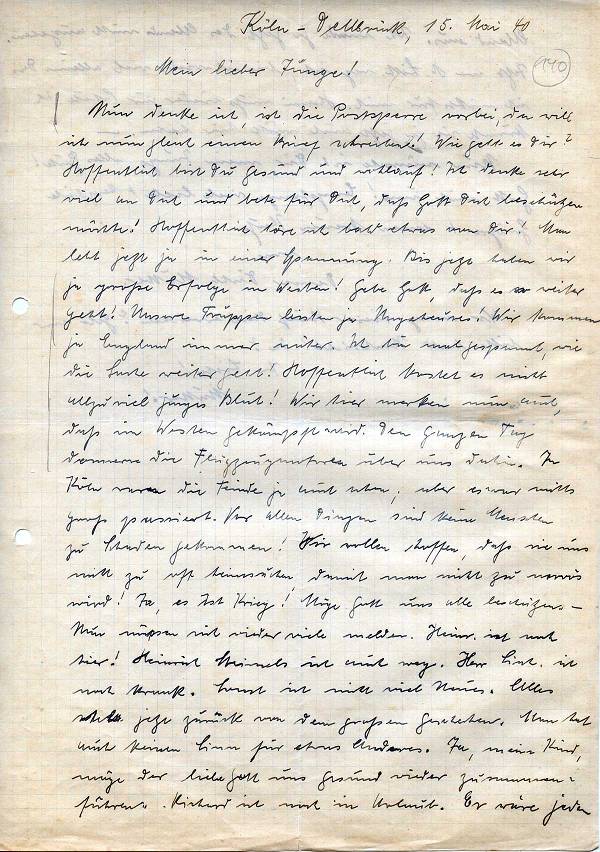 Köln – Dellbrück, 15. Mai 40
140
Mein lieber Junge!
Nun denke ich, ist die Postsperre vorbei, da will
ich nun gleich einen Brief schreiben! Wie geht es Dir?
Hoffentlich bist Du gesund und wohlauf! Ich denke sehr
viel an Dich und bete für Dich, daß Gott Dich beschützen
möchte! Hoffentlich höre ich bald etwas von Dir! Man
lebt jetzt ja in einer Spannung. Bis jetzt haben wir
ja große Erfolge im Westen! Gebe Gott, daß es so weiter
geht! Unsere Truppen leisten ja Ungeheures! Wir kommen
ja England immer näher. Ich bin mal gespannt, wie
die Sache weiter geht! Hoffentlich kostet es nicht
allzu viel junges Blut! Wir hier merken nun auch,
daß im Westen gekämpft wird. Den ganzen Tag
donnern die Flugzeugmotoren über uns dahin. In
Köln waren die Feinde ja auch schon; aber es war nichts
groß passiert. Vor allen Dingen sind keine Menschen
zu Schaden gekommen! Wir wollen hoffen, daß sie uns
nicht zu oft heimsuchen damit man nicht zu nervös
wird! Ja, es ist Krieg! Möge Gott uns alle beschützen –
Nun müssen sich wieder viele melden. Heinr. ist noch
hier! Heinrich ist auch weg. Herr ist
noch krank. Sonst ist nicht viel Neues. Alles
steht jetzt zurück vor dem großen Geschehen. Man hat
auch keinen Sinn für etwas Anderes. Ja, mein Kind,
möge der liebe Gott uns gesund wieder zusammen-
führen. Richard ist noch in Urlaub. Er wäre jeden